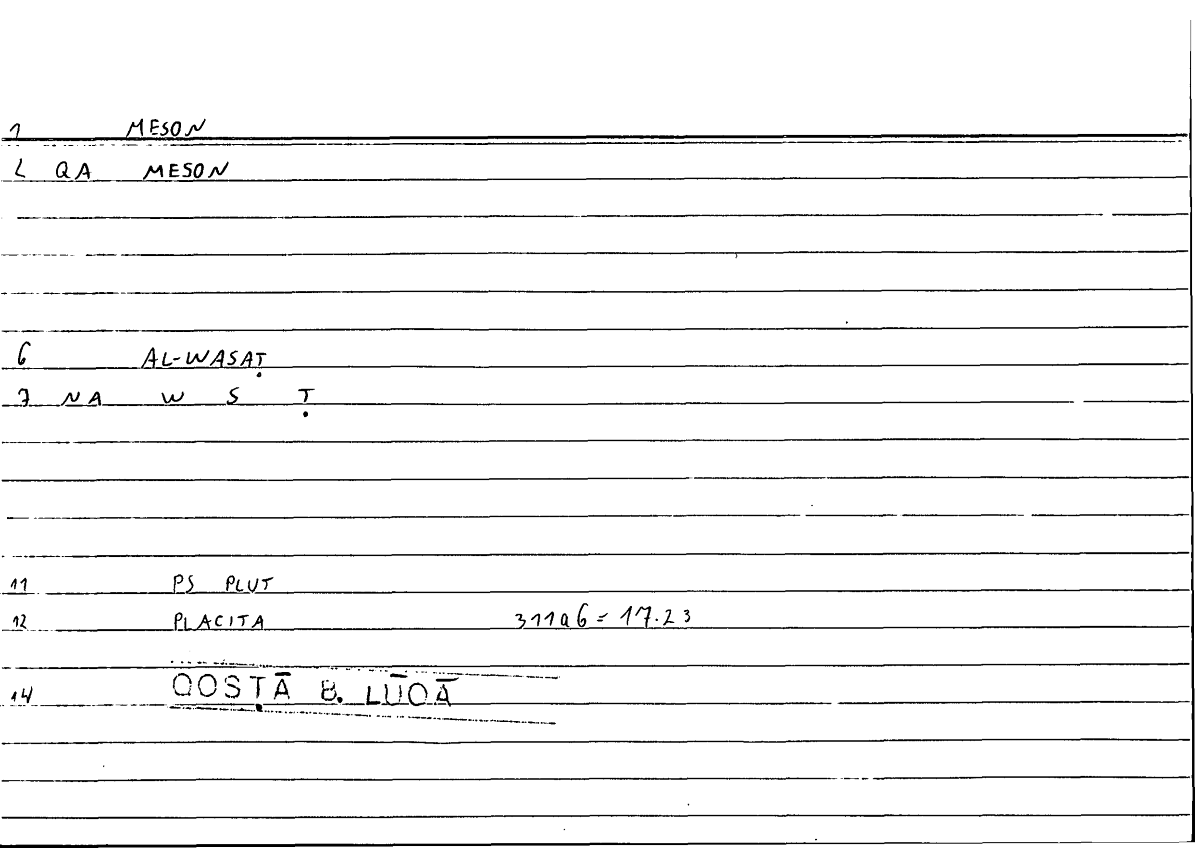 1 MESON
2 QA MESON
6 AL-WASAṬ
7 NA W S Ṭ
11 PS PLUT
12 PLACITA 311a6 = 17.23
14 QOSṬĀ B. LŪQĀ